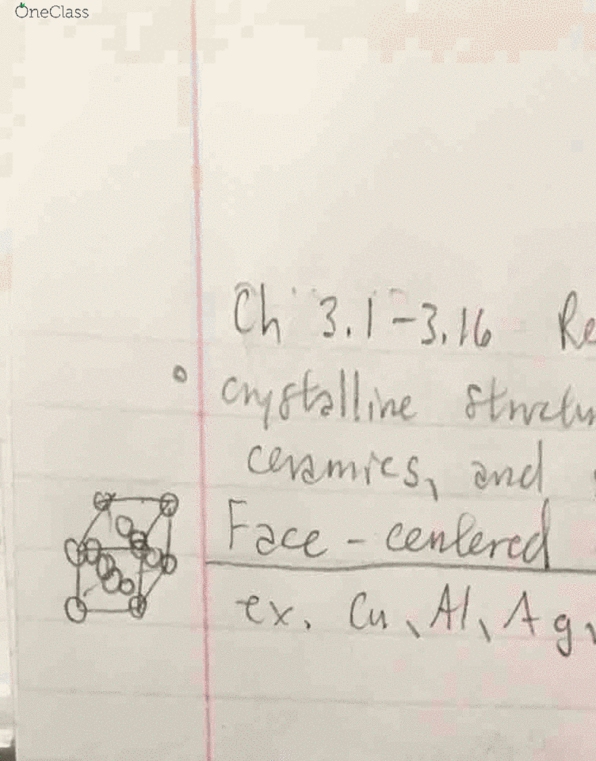 OneClass
Ch 3.1-3.16 Re
crystalline structu
ceramics, and
Face-centered
ex. Cu, Al, Ag,